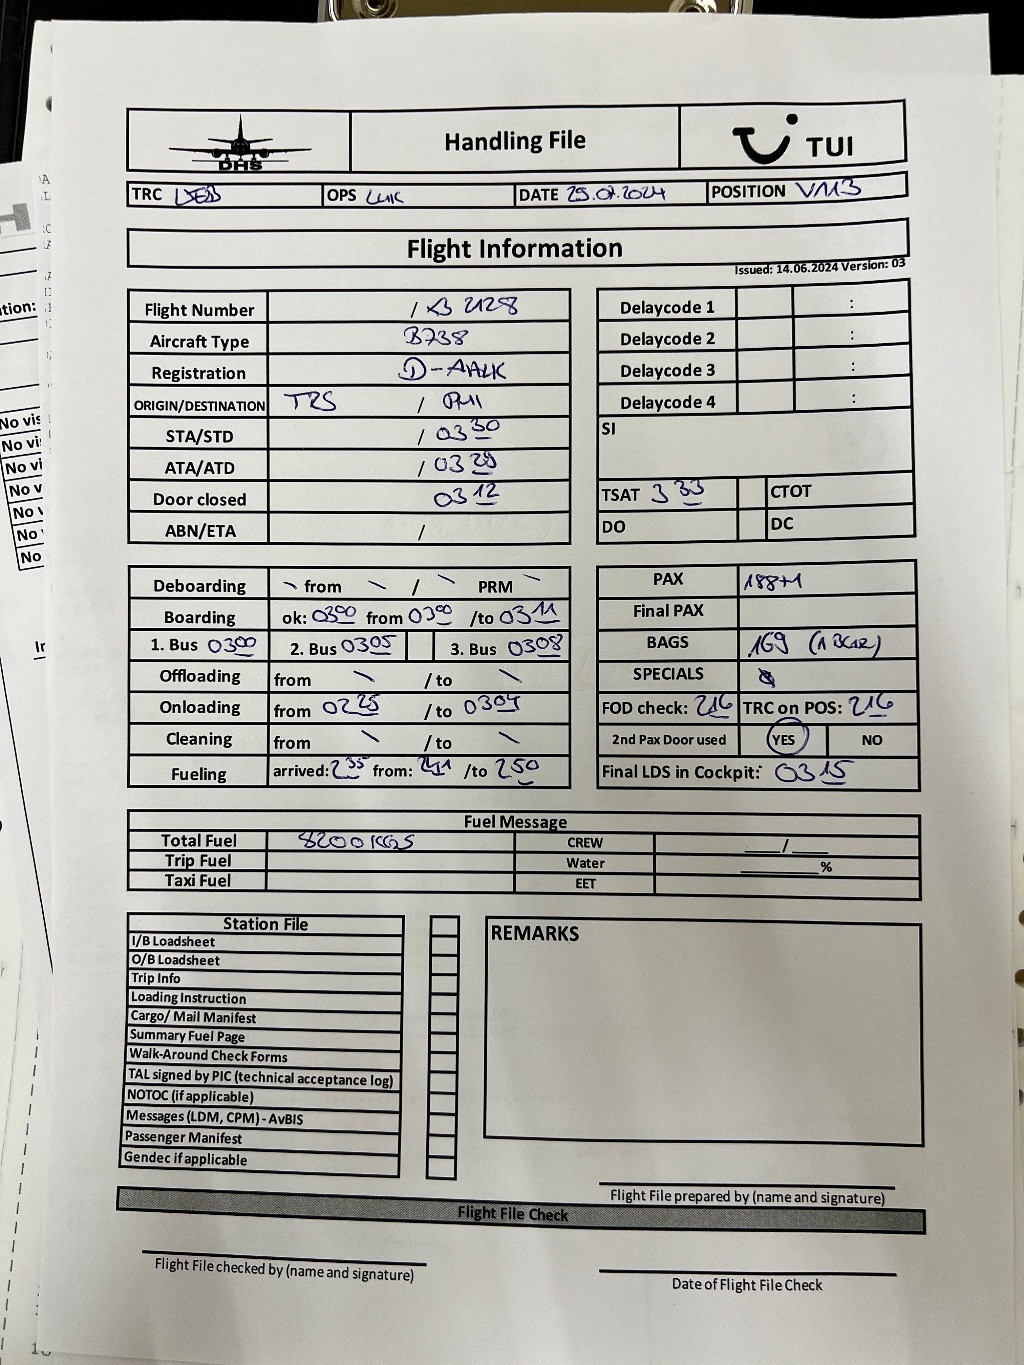 DHS
Handling File
TUI
TRC
OPS LUK DATE 25.07.2024 POSITION V113
Flight Information
Issued: 14.06.2024 Version: 03
Flight Number / X3 2128
Aircraft Type B738
Registration D-AALK
ORIGIN/DESTINATION TRS / PMI
STA/STD / 0330
ATA/ATD / 0328
Door closed 0312
ABN/ETA /
Delaycode 1 :
Delaycode 2 :
Delaycode 3 :
Delaycode 4 :
SI
TSAT 333 CTOT
DO DC
Deboarding from / PRM
Boarding ok: 0300 from 0300 /to 0311
1. Bus 0300 2. Bus 0305 3. Bus 0308
Offloading from / to
Onloading from 0225 / to 0304
Cleaning from / to
Fueling arrived: 235 from: 241 /to 250
PAX 188+1
Final PAX
BAGS 169
SPECIALS
FOD check: 216 TRC on POS: 216
2nd Pax Door used YES NO
Final LDS in Cockpit: 0315
Fuel Message
Total Fuel 8200 KGS CREW ___/___
Trip Fuel Water ______%
Taxi Fuel EET
Station File
I/B Loadsheet
O/B Loadsheet
Trip Info
Loading Instruction
Cargo/ Mail Manifest
Summary Fuel Page
Walk-Around Check Forms
TAL signed by PIC (technical acceptance log)
NOTOC (if applicable)
Messages (LDM, CPM) - AvBIS
Passenger Manifest
Gendec if applicable
REMARKS
Flight File prepared by (name and signature)
Flight File Check
Flight File checked by (name and signature)
Date of Flight File Check